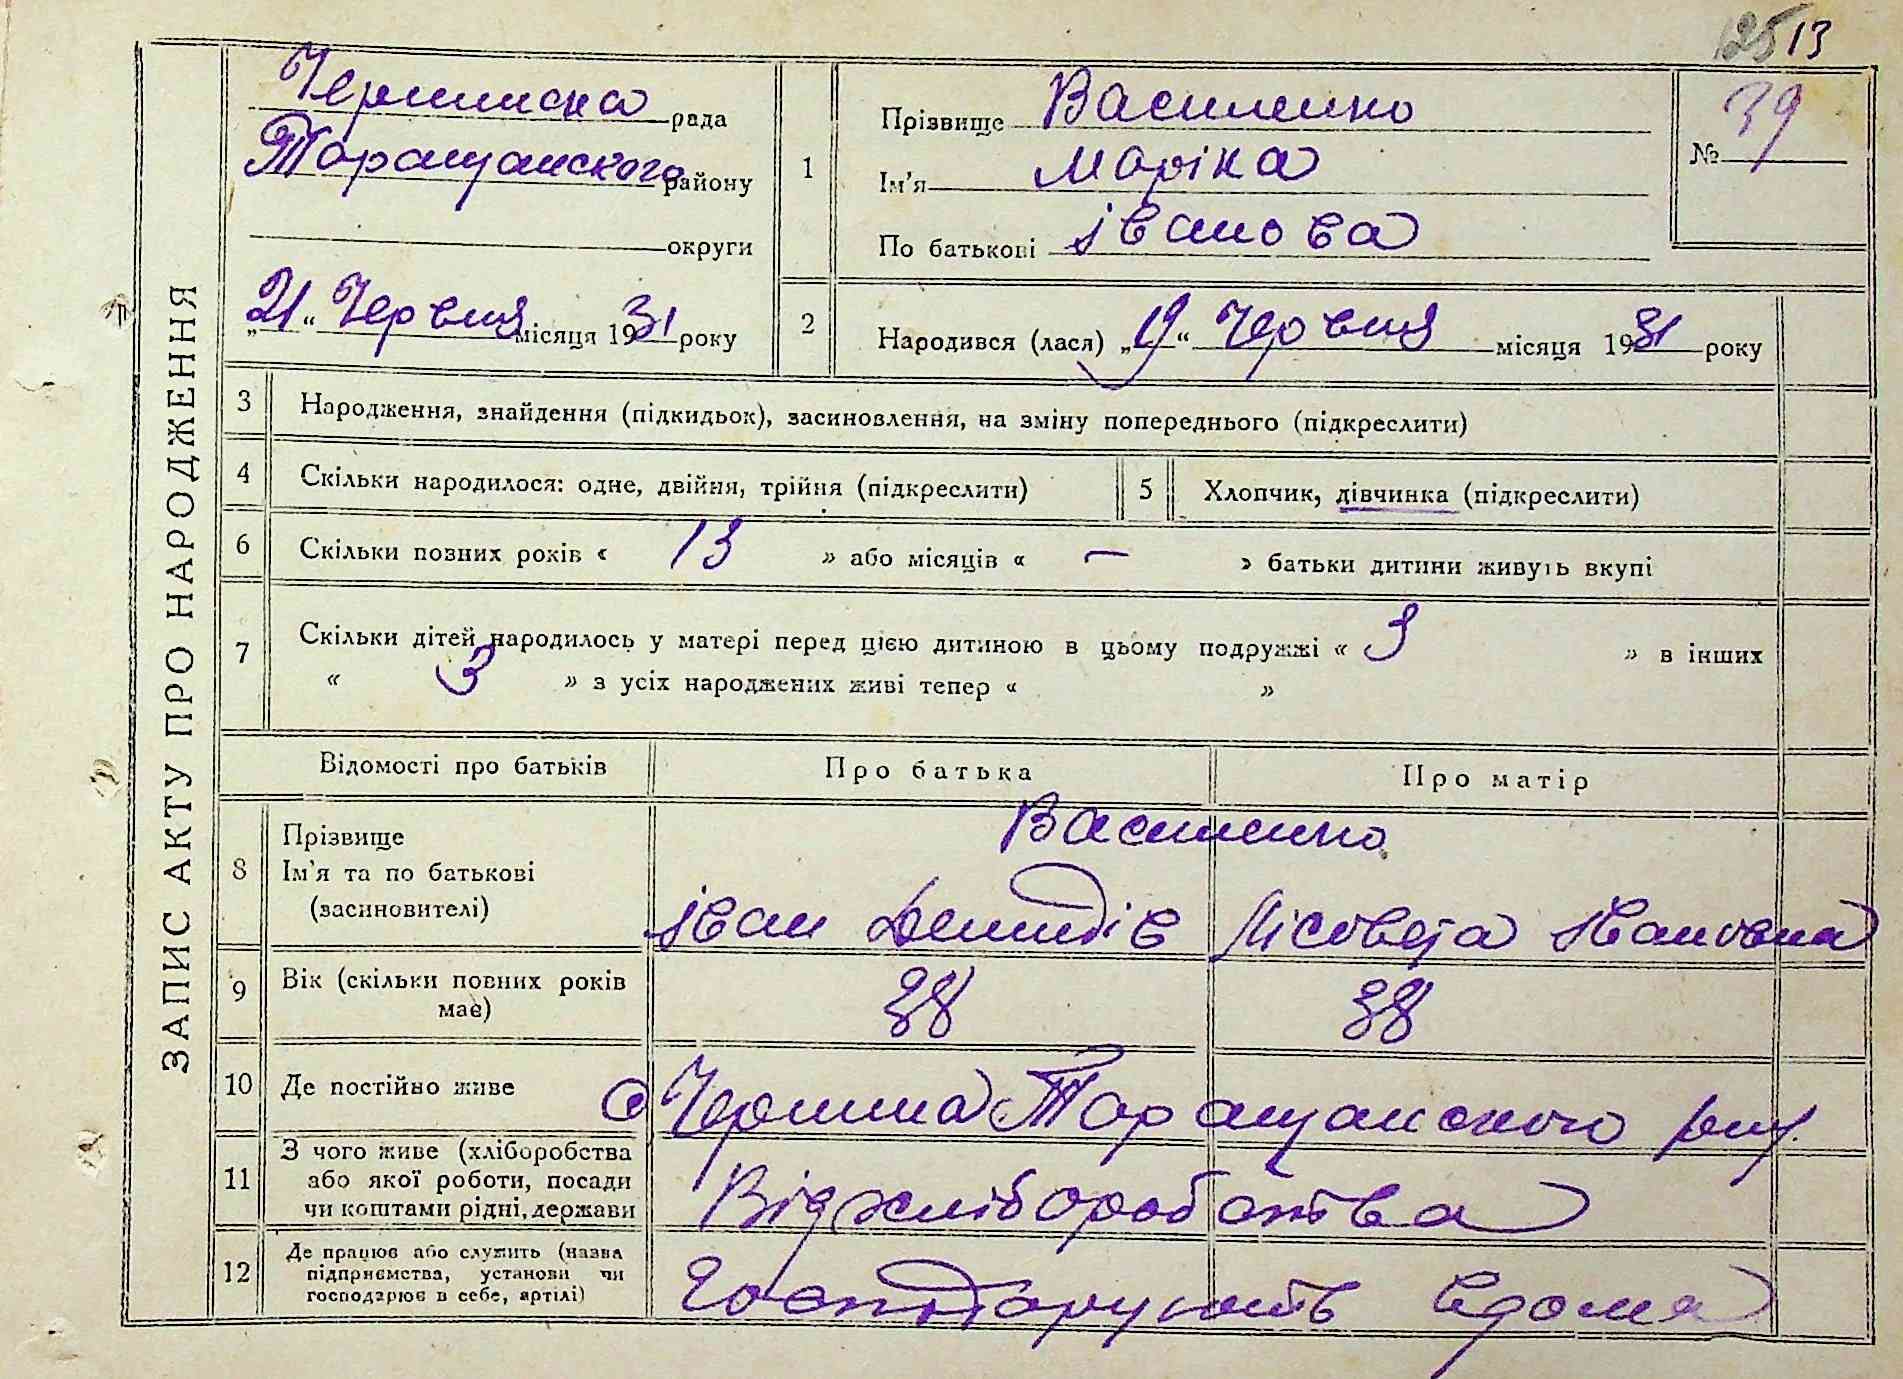 125 13
ЗАПИС АКТУ ПРО НАРОДЖЕННЯ
Чернинска рада
Таращанского району
округи
„21“ Червня місяця 1931 року
1
Прізвище Василенко
Ім'я Маріка
По батькові івановa
№ 39
2
Народився (лася) „19“ Червня місяця 1931 року
3 Народження, знайдення (підкидьок), засиновлення, на зміну попереднього (підкреслити)
4 Скільки народилося: одне, двійня, трійня (підкреслити) 5 Хлопчик, дівчинка (підкреслити)
6 Скільки позних років « 13 » або місяців « — » батьки дитини живуть вкупі
7 Скільки дітей народилось у матері перед цією дитиною в цьому подружжі « 3 » в інших
« 3 » з усіх народжених живі тепер « »
Відомості про батьків Про батька Про матір
8 Прізвище
Ім'я та по батькові
(засиновителі)
Василенко
іван Демидів Лісовета Івановна
9 Вік (скільки повних років
має)
38 38
10 Де постійно живе с Чернина Таращанского рну.
11 З чого живе (хліборобства
або якої роботи, посади
чи коштами рідні, держави
Від хліборобства
12 Де працює або служить (назва
підприємства, установи чи
господарює в себе, артілі)
Господарують вдома